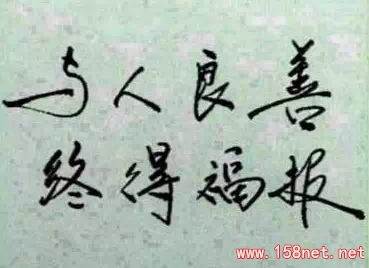 与人良善
终得福报
www.158net.net